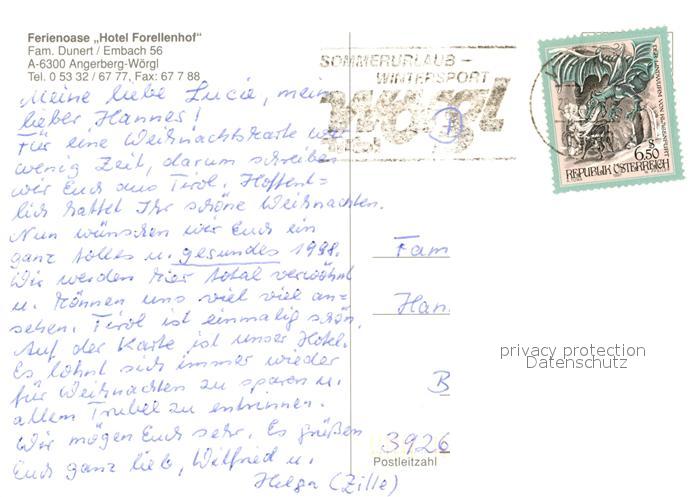 Ferienoase „Hotel Forellenhof“
Fam. Dunert / Embach 56
A-6300 Angerberg-Wörgl
Tel. 0 53 32 / 67 77, Fax: 67 7 88
SOMMERURLAUB -
WINTERSPORT
wörgl
DER LINDWURM VON KLAGENFURT
S
6.50
REPUBLIK ÖSTERREICH
Meine liebe Lucie, mein
lieber Hannes!
Für eine Weihnachtskarte war
wenig Zeit, darum schreiben
wir Euch aus Tirol. Hoffent=
lich hattet Ihr schöne Weihnachten.
Nun wünschen wir Euch ein
ganz tolles u. gesundes 1998.
Wir werden hier total verwöhnt
u. können uns viel viel an=
sehen. Tirol ist einmalig schön.
Auf der Karte ist unser Hotel.
Es lohnt sich immer wieder
für Weihnachten zu sparen u.
allem Trubel zu entrinnen.
Wir mögen Euch sehr. Es grüßen
Euch ganz lieb, Wilfried u.
Helga (Zille)
Fam
Han
B
3926
Postleitzahl
privacy protection
Datenschutz